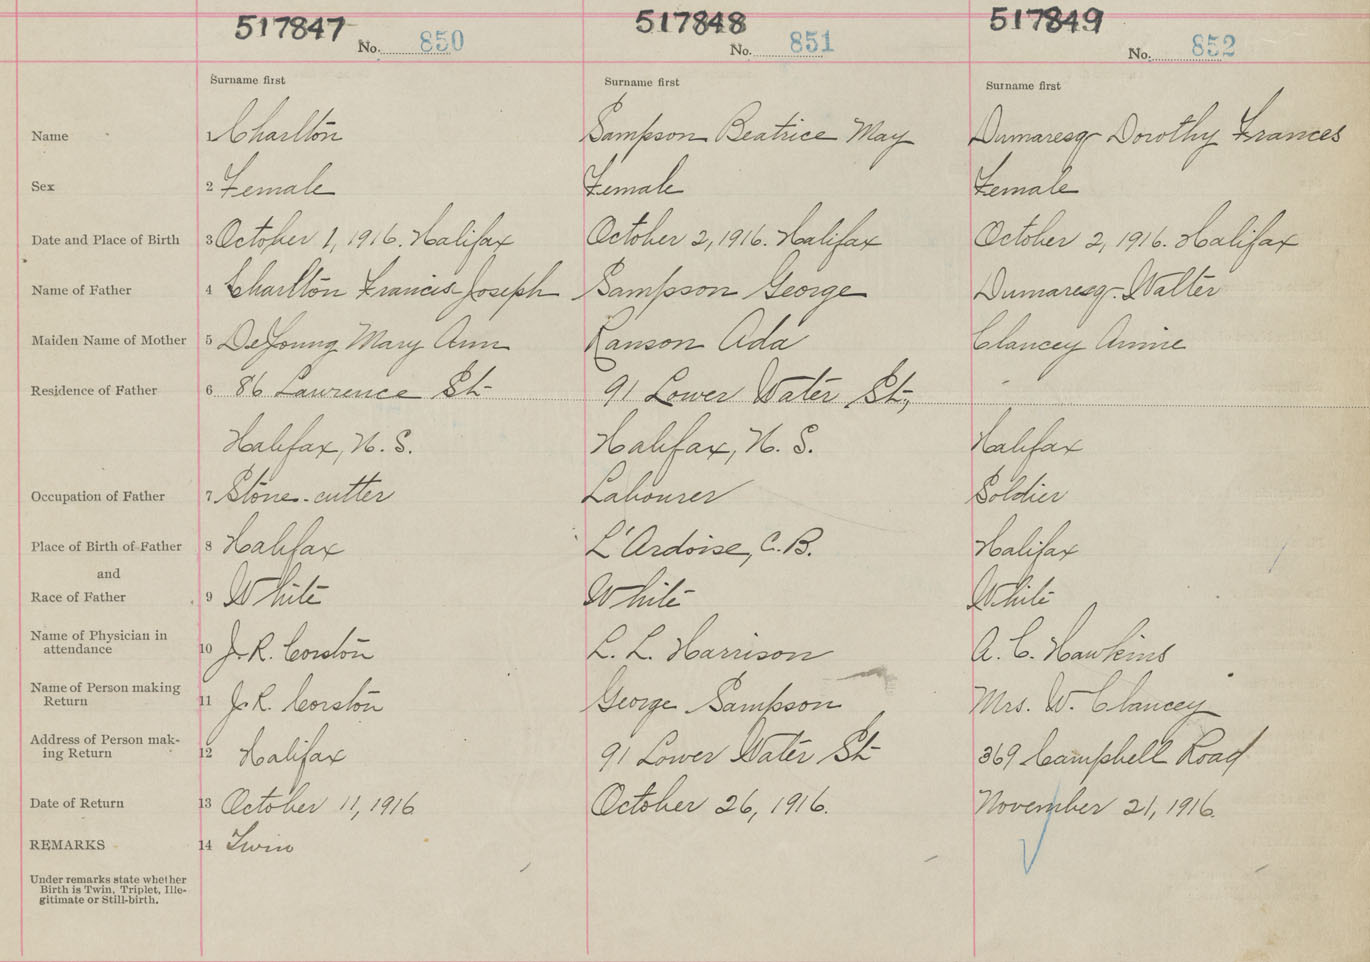 517847 517848 517849
No. 850 No. 851 No. 852
Surname first Surname first Surname first
Name 1 Charlton Sampson Beatrice May Dumaresq Dorothy Frances
Sex 2 Female Female Female
Date and Place of Birth 3 October 1, 1916. Halifax October 2, 1916. Halifax October 2, 1916. Halifax
Name of Father 4 Charlton Francis Joseph Sampson George Dumaresq. Walter
Maiden Name of Mother 5 DeYoung Mary Ann Ranson Ada Clancey Annie
Residence of Father 6 86 Lawrence St 91 Lower Water St.,
Halifax, N. S. Halifax, N. S. Halifax
Occupation of Father 7 Stone-cutter Labourer Soldier
Place of Birth of Father 8 Halifax L'Ardoise, C.B. Halifax
and
Race of Father 9 White White White
Name of Physician in
attendance 10 J. R. Corston L. L. Harrison A. C. Hawkins
Name of Person making
Return 11 J. R. Corston George Sampson Mrs. W. Clancey
Address of Person mak-
ing Return 12 Halifax 91 Lower Water St 369 Campbell Road
Date of Return 13 October 11, 1916 October 26, 1916. November 21, 1916.
REMARKS 14 Twin
Under remarks state whether
Birth is Twin, Triplet, Ille-
gitimate or Still-birth.